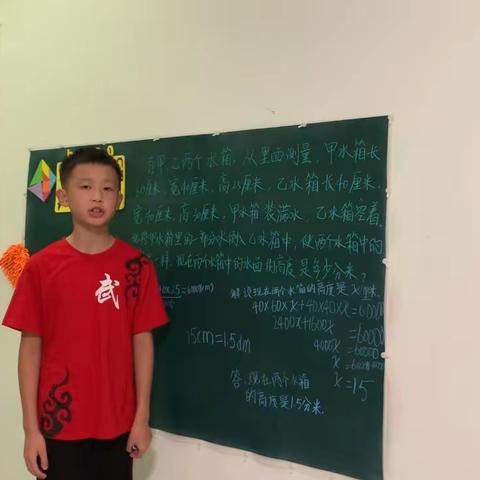 有甲、乙两个水箱,从里面测量,甲水箱长
厘米,宽40厘米,高25厘米,乙水箱长40厘米,
宽40厘米,高30厘米,甲水箱装满水,乙水箱空着.
水箱里的一部分水倒入乙水箱中,使两个水箱中的
一样,现在两个水箱中的水面的高度是多少分米?
解:设现在两个水箱的高度是x厘米.
40×60×x+40×40×x=60000
2400x+1600x=60000
4000x=60000
x=15
15cm=1.5dm
答:现在两个水箱
的高度是1.5分米.
武